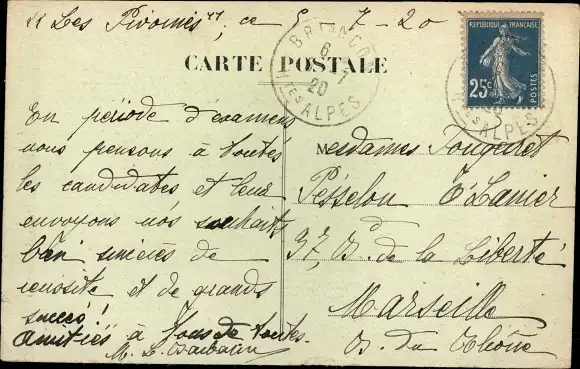 "Les Pivoines", ce 5-7-20
CARTE POSTALE
BRIANÇON
6-7
20
HTES ALPES
REPUBLIQUE FRANÇAISE
25c
POSTES
HTES ALPES
En période d'examens
nous pensons à toutes
les candidates, et leur
envoyons nos souhaits
bien sincères de
réussite et de grands
succès!
Amitiés à tous de toutes.
M. L.
Mesdames Fougeret
Pesselon T'Lanier
37, B. de la Liberté
Marseille
B. du Rhône